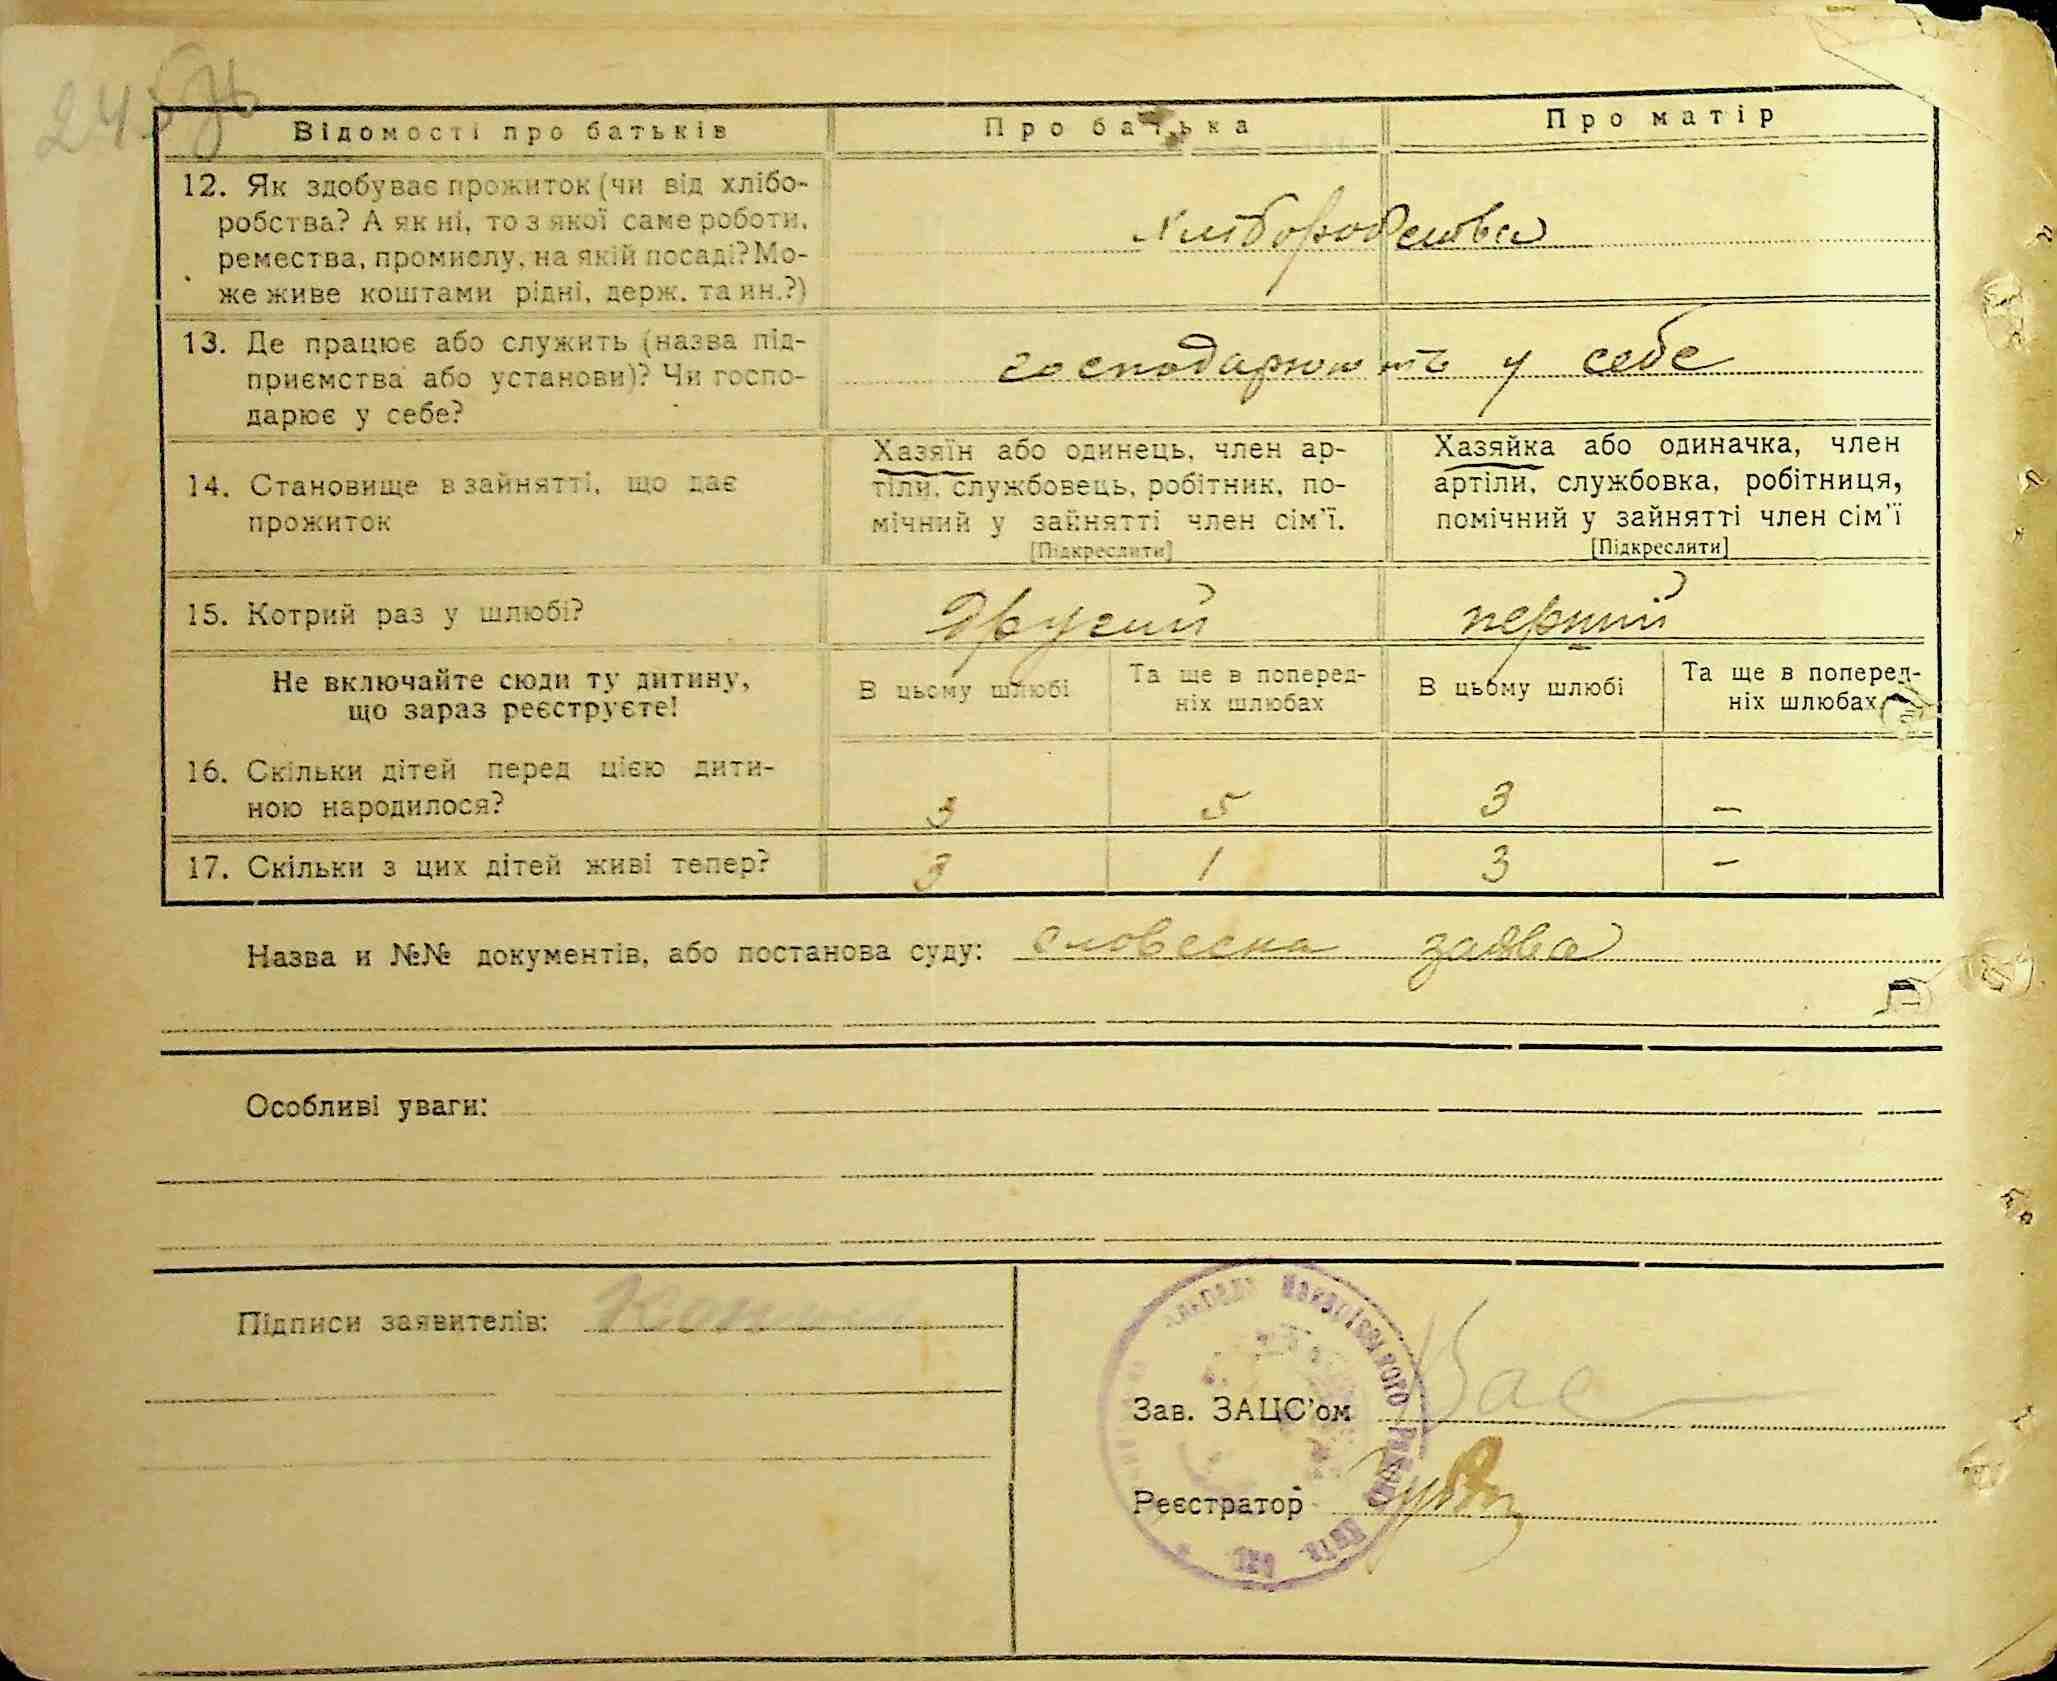 Відомості про батьків
Про батька
Про матір
12. Як здобуває прожиток (чи від хлібо-
робства? А як ні, то з якої саме роботи,
ремества, промислу, на якій посаді? Мо-
же живе коштами рідні, держ. та ин.?)
13. Де працює або служить (назва під-
приємства або установи)? Чи госпо-
дарює у себе?
господарюють у себе
14. Становище в зайнятті, що дає
прожиток
Хазяїн або одинець, член ар-
тіли, службовець, робітник, по-
мічний у зайнятті член сім'ї.
[Підкреслити]
Хазяйка або одиначка, член
артіли, службовка, робітниця,
помічний у зайнятті член сім'ї
[Підкреслити]
15. Котрий раз у шлюбі?
Другий
перший
Не включайте сюди ту дитину,
що зараз реєструєте!
В цьому шлюбі
Та ще в поперед-
ніх шлюбах
В цьому шлюбі
Та ще в поперед-
ніх шлюбах
16. Скільки дітей перед цією дити-
ною народилося?
3 5 3 –
17. Скільки з цих дітей живі тепер?
3 1 3 –
Назва и №№ документів, або постанова суду: словесна заява
Особливі уваги:
Підписи заявителів:
Зав. ЗАЦС'ом
Реєстратор